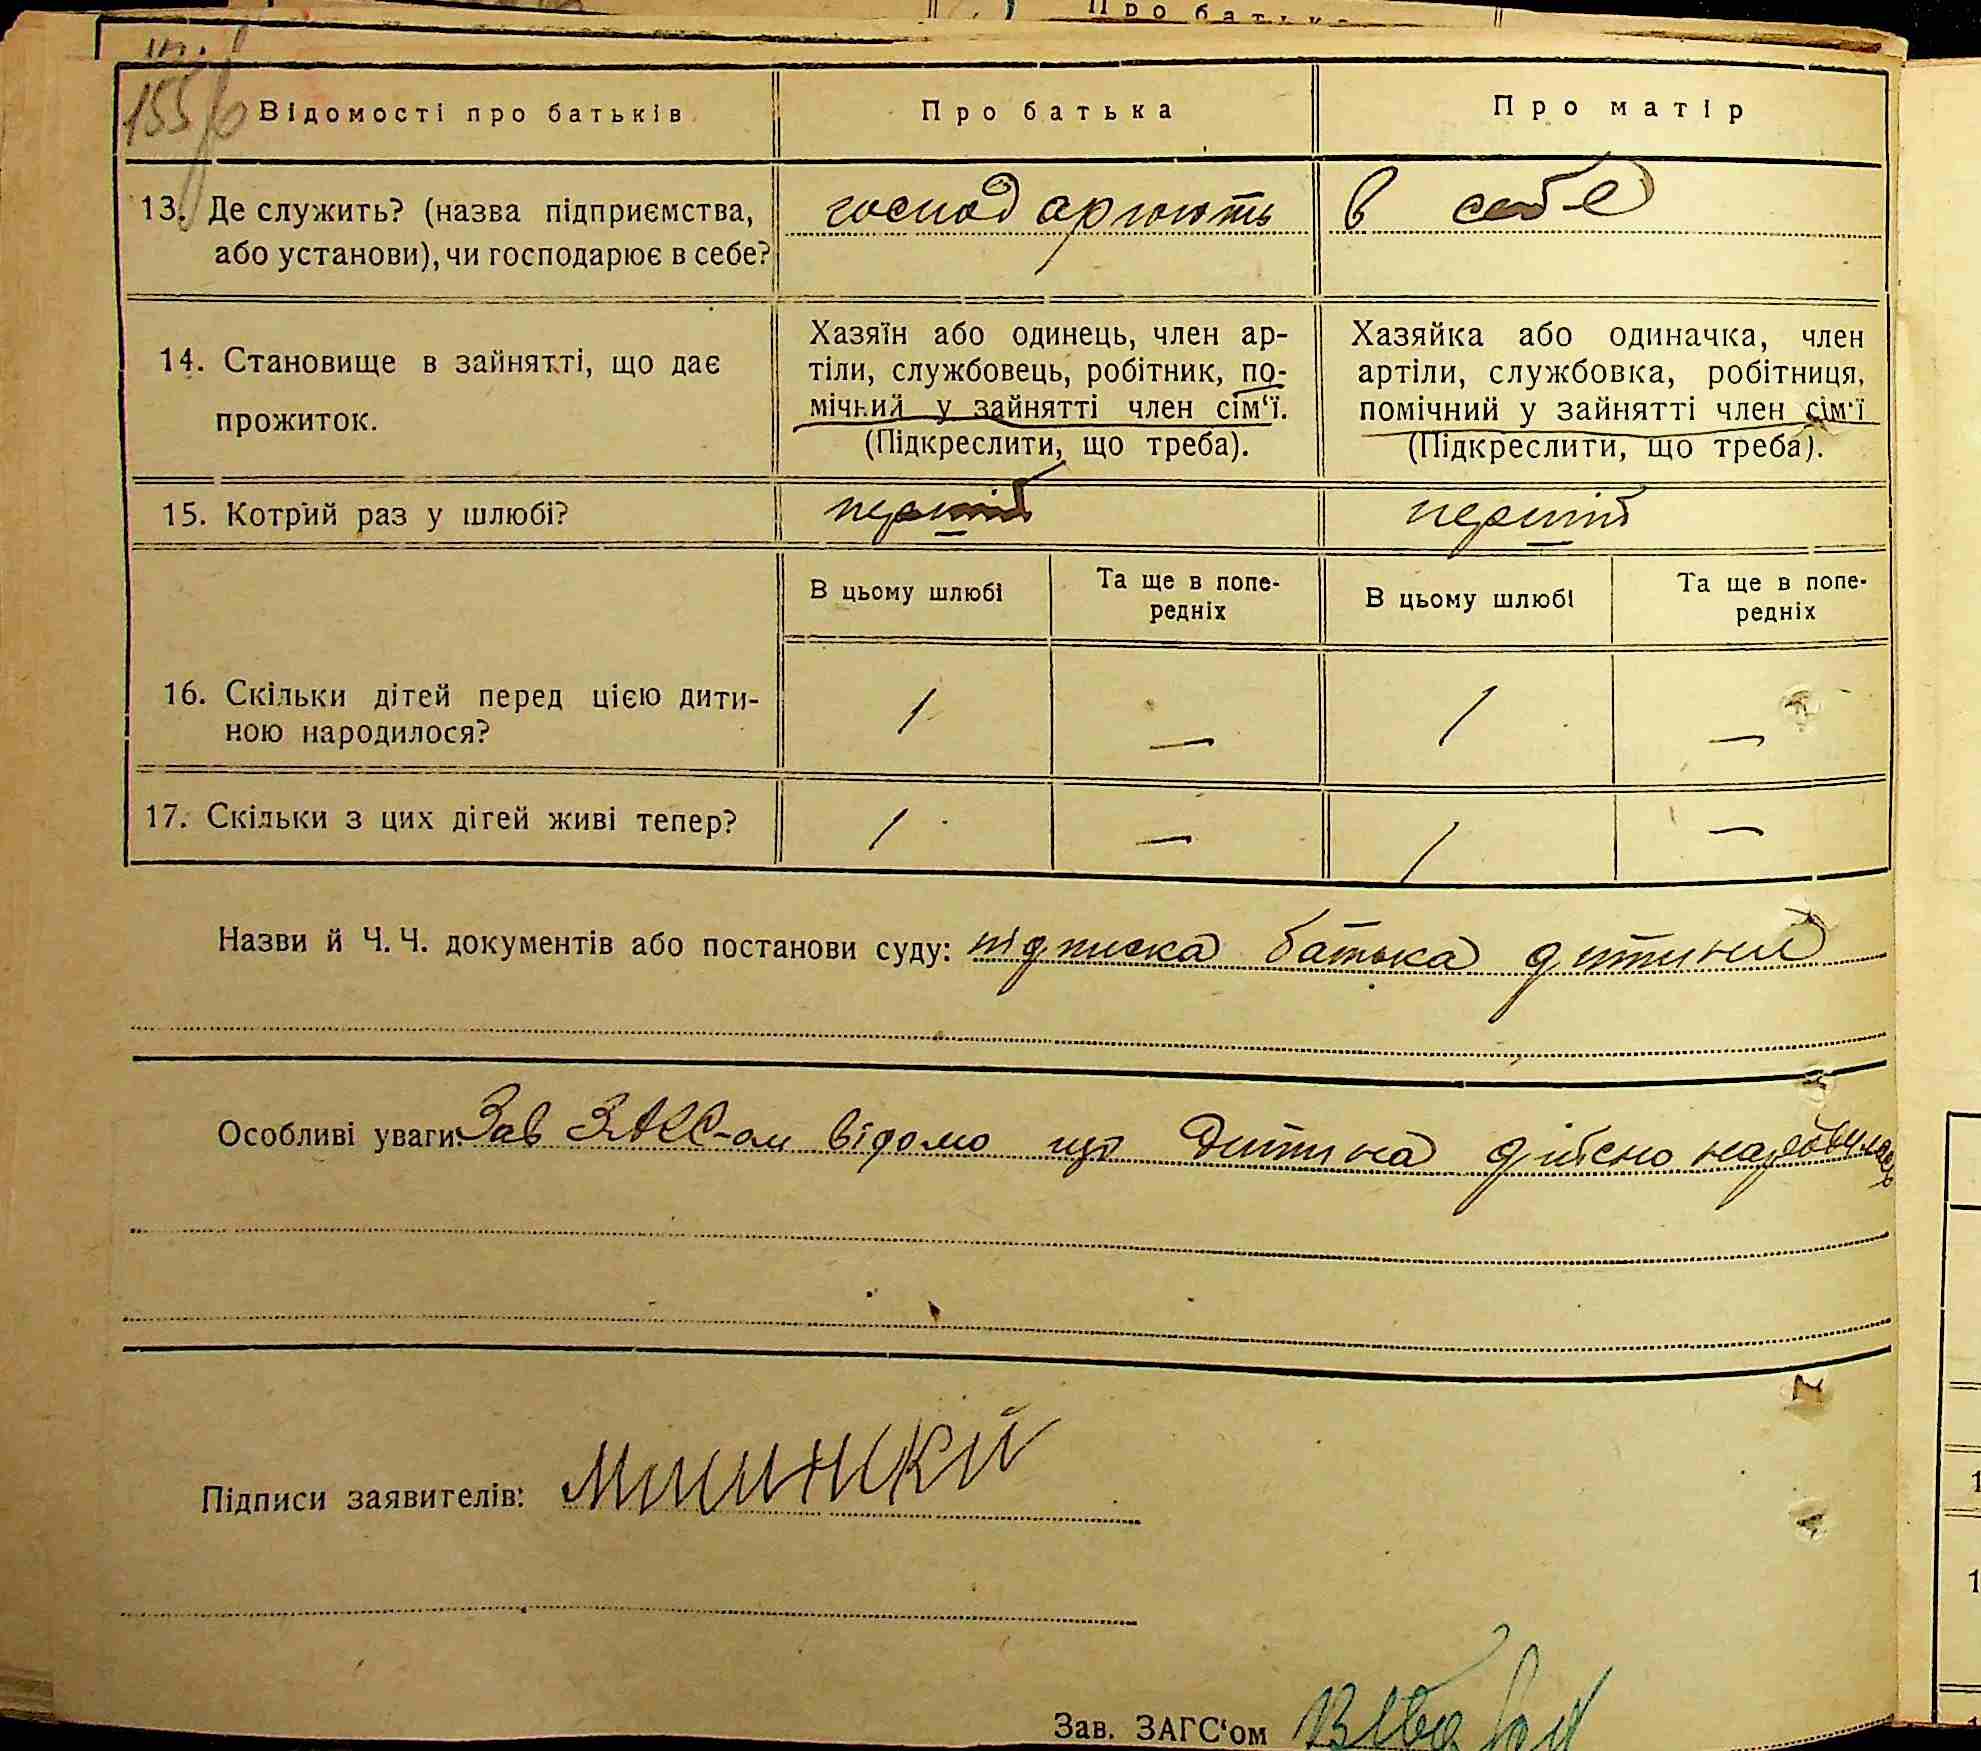 Про батька
155
Відомості про батьків
Про батька
Про матір
13. Де служить? (назва підприємства,
або установи), чи господарює в себе?
господарюють
в себе
14. Становище в зайнятті, що дає
прожиток.
Хазяїн або одинець, член ар-
тіли, службовець, робітник, по-
мічний у зайнятті член сім'ї.
(Підкреслити, що треба).
Хазяйка або одиначка, член
артіли, службовка, робітниця,
помічний у зайнятті член сім'ї
(Підкреслити, що треба).
15. Котрий раз у шлюбі?
перший
перший
В цьому шлюбі
Та ще в попе-
редніх
В цьому шлюбі
Та ще в попе-
редніх
16. Скільки дітей перед цією дити-
ною народилося?
1 — 1 —
17. Скільки з цих дітей живі тепер?
1 — 1 —
Назви й Ч. Ч. документів або постанови суду: підписка батька дитини
Особливі уваги: Зав ЗАГС-ом відомо що дитина дійсно народилась
Підписи заявителів:
Зав. ЗАГС'ом